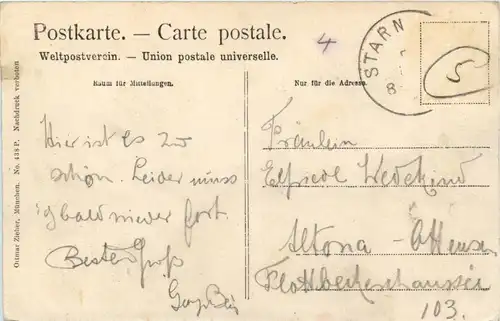 Postkarte. — Carte postale.
Weltpostverein. — Union postale universelle.
4
STARN
8
5
Raum für Mitteilungen.
Nur für die Adresse.
Ottmar Zieher, München. No. 438 P. Nachdruck verboten
Hier ist es zu
schön. Leider muss
ich bald wieder fort.
Besten Gruß
Fräulein
Wedekind
Altona - Ottensen
Flottbeckerchaussee
103.